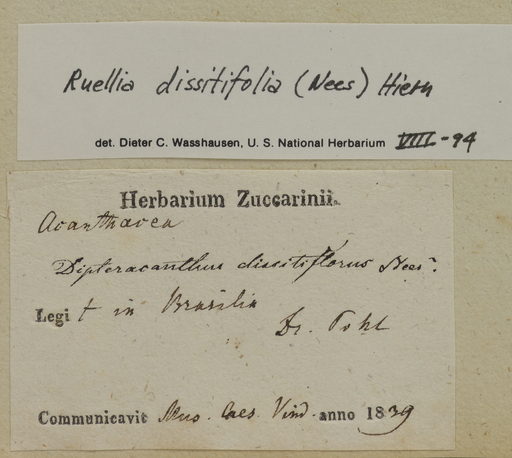 Ruellia dissitifolia (Nees) Hiern
det. Dieter C. Wasshausen, U. S. National Herbarium VIII-94
Herbarium Zuccarinii.
Acanthacea
Dipteracanthus dissitiflorus Nees.
Legit in Brasilia
Dr. Pohl
Communicavit Mus. Caes. Vind. anno 1839